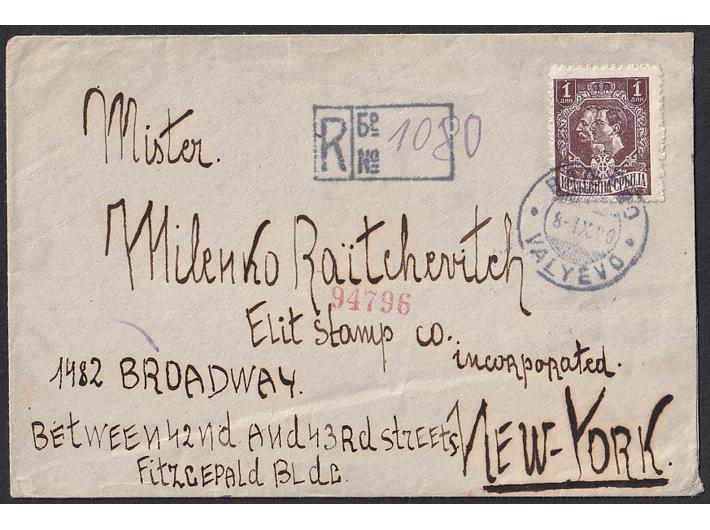 1 1
ДИН ДИН
КРАЉЕВИНА СРБИЈА
R Бр
№ 1080
VALYÉVO
Mister.
Milenko Raïtchevitch
94796
Elit Stamp co.
incorporated.
1482 BROADWAY.
BETWEEN 42nd And 43Rd STREETS
FITZGEPALD BLDG.
NEW-YORK.